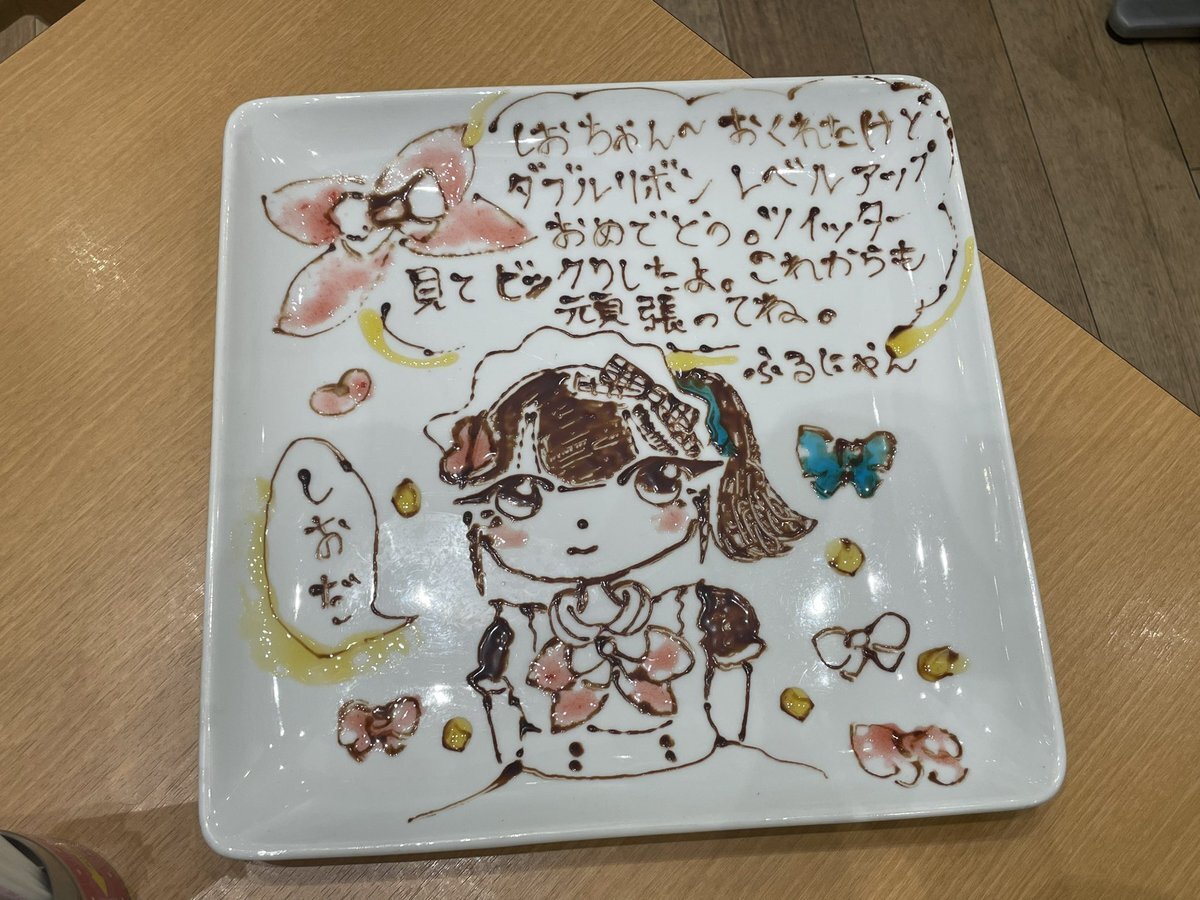 しおちゃん〜 おくれたけど
ダブルリボン レベルアップ
おめでとう。ツイッター
見てビックリしたよ。これからも
頑張ってね。
ふるにゃん
しおだ